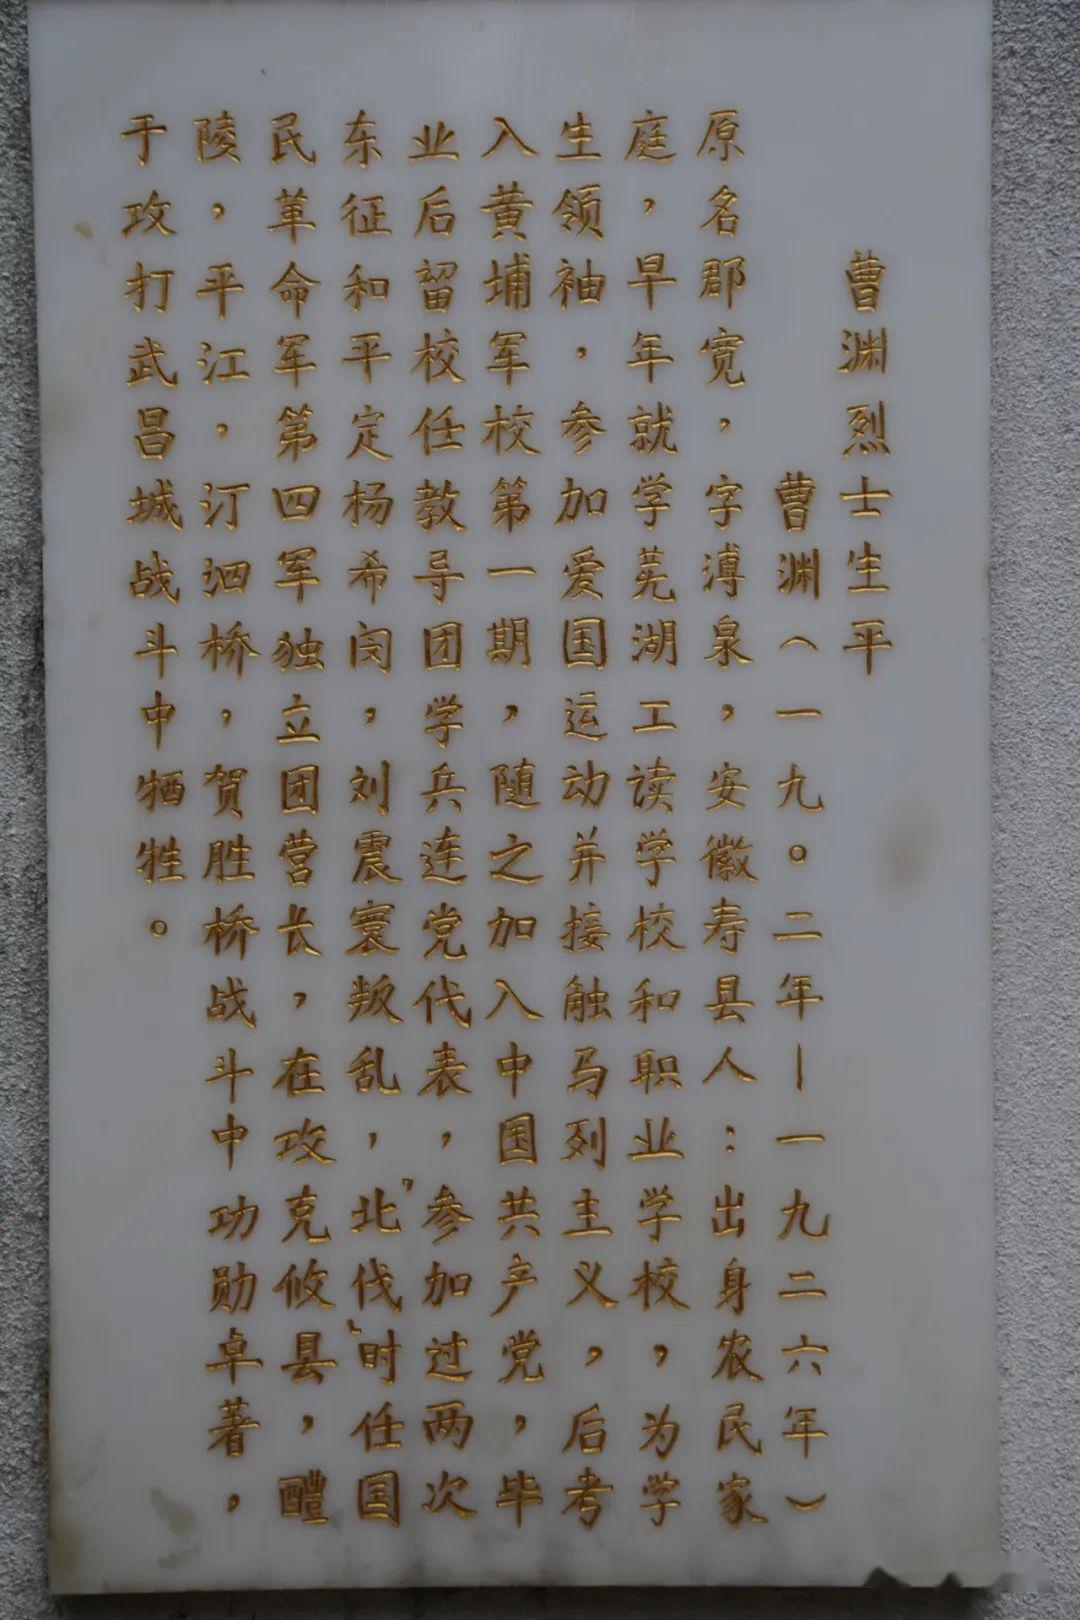 曹渊烈士生平
曹渊（一九○二年—一九二六年）
原名郡宽，字溥泉，安徽寿县人：出身农民家
庭，早年就学芜湖工读学校和职业学校，为学
生领袖，参加爱国运动并接触马列主义，后考
入黄埔军校第一期，随之加入中国共产党，毕
业后留校任教导团学兵连党代表，参加过两次
东征和平定杨希闵，刘震寰叛乱，“北伐”时任国
民革命军第四军独立团营长，在攻克攸县，醴
陵，平江，汀泗桥，贺胜桥战斗中功勋卓著，
于攻打武昌城战斗中牺牲。